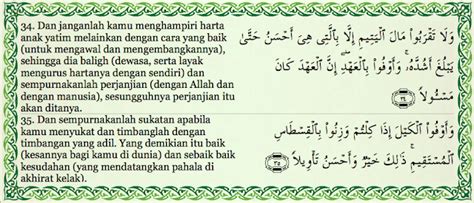 34. Dan janganlah kamu menghampiri harta
anak yatim melainkan dengan cara yang baik
(untuk mengawal dan mengembangkannya),
sehingga dia baligh (dewasa, serta layak
mengurus hartanya dengan sendiri) dan
sempurnakanlah perjanjian (dengan Allah dan
dengan manusia), sesungguhnya perjanjian itu
akan ditanya.
وَلَا تَقْرَبُوا۟ مَالَ ٱلْيَتِيمِ إِلَّا بِٱلَّتِى هِىَ أَحْسَنُ حَتَّىٰ
يَبْلُغَ أَشُدَّهُۥ ۚ وَأَوْفُوا۟ بِٱلْعَهْدِ ۖ إِنَّ ٱلْعَهْدَ كَانَ
مَسْـُٔولًا ٣٤
35. Dan sempurnakanlah sukatan apabila
kamu menyukat dan timbanglah dengan
timbangan yang adil. Yang demikian itu baik
(kesannya bagi kamu di dunia) dan sebaik baik
kesudahan (yang mendatangkan pahala di
akhirat kelak).
وَأَوْفُوا۟ ٱلْكَيْلَ إِذَا كِلْتُمْ وَزِنُوا۟ بِٱلْقِسْطَاسِ
ٱلْمُسْتَقِيمِ ۚ ذَٰلِكَ خَيْرٌ وَأَحْسَنُ تَأْوِيلًا ٣٥